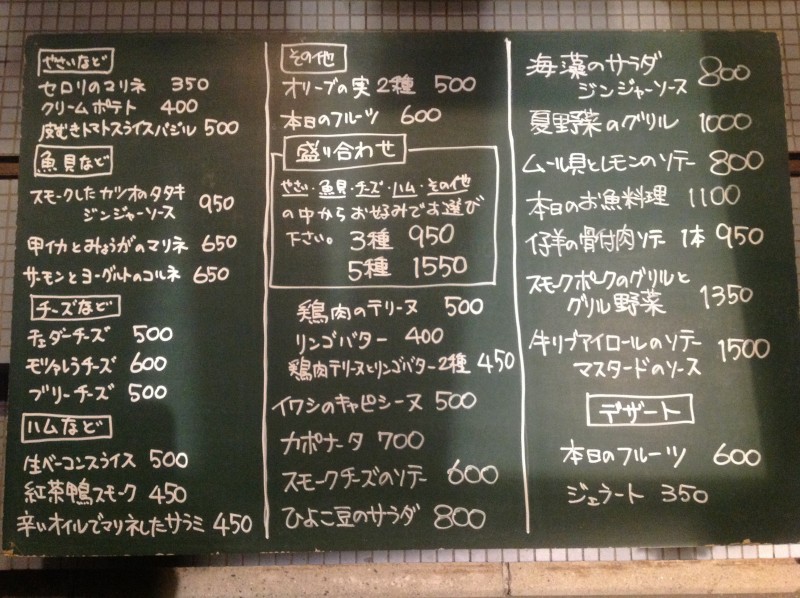 やさいなど
セロリのマリネ 350
クリームポテト 400
皮むきトマトスライスバジル 500
魚貝など
スモークしたカツオのタタキ
ジンジャーソース 950
甲イカとみょうがのマリネ 650
サーモンとヨーグルトのコルネ 650
チーズなど
チェダーチーズ 500
モツァレラチーズ 600
ブリーチーズ 500
ハムなど
生ベーコンスライス 500
紅茶鴨スモーク 450
辛いオイルでマリネしたサラミ 450
その他
オリーブの実2種 500
本日のフルーツ 600
盛り合わせ
やさい・魚貝・チーズ・ハム・その他
の中からお好みでお選び
下さい。 3種 950
5種 1550
鶏肉のテリーヌ 500
リンゴバター 400
鶏肉テリーヌとリンゴバター2種 450
イワシのキャピシーヌ 500
カポナータ 700
スモークチーズのソテー 600
ひよこ豆のサラダ 800
海藻のサラダ
ジンジャーソース 800
夏野菜のグリル 1000
ムール貝とレモンのソテー 800
本日のお魚料理 1100
仔羊の骨付肉ソテー 1本 950
スモークポークのグリルと
グリル野菜 1350
牛リブアイロールのソテー
マスタードのソース 1500
デザート
本日のフルーツ 600
ジェラート 350